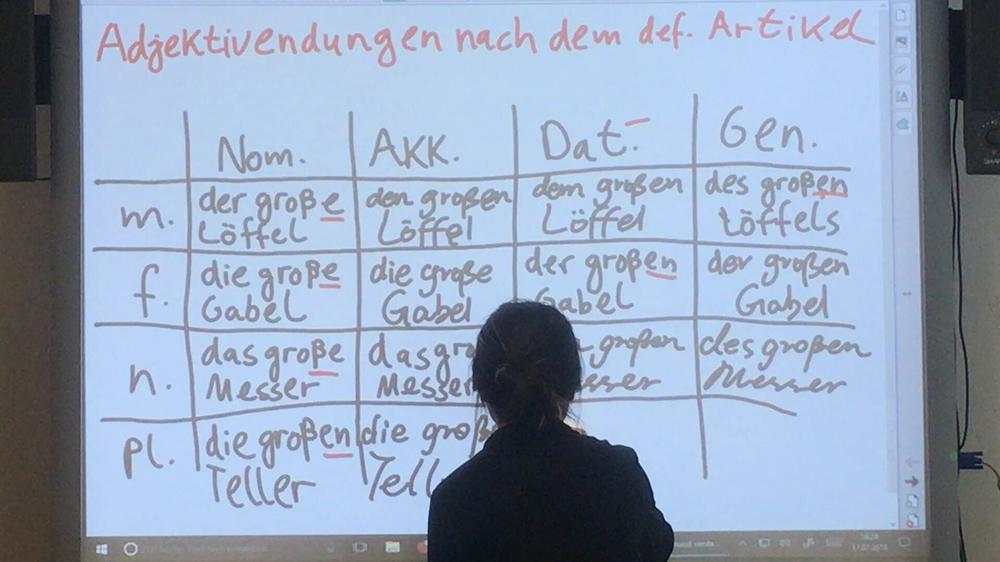 Adjektivendungen nach dem def. Artikel
Nom. AKK. Dat. Gen.
m. der große den großen dem großen des großen
Löffel Löffel Löffel Löffels
f. die große die große der großen der großen
Gabel Gabel Gabel Gabel
n. das große das gro großen des großen
Messer Messer sser Messer
pl. die großen die groß
Teller Tell